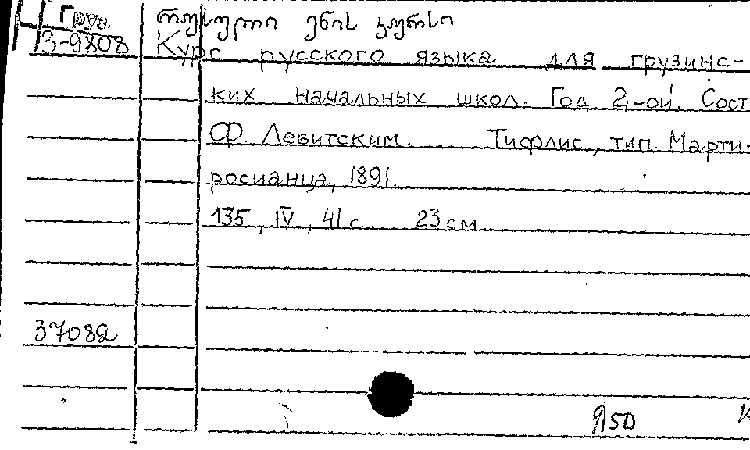 Груз. რუსული ენის კურსი
3-9808 Курс русского языка для грузинс-
ких начальных школ. Год 2-ой. Сост
Ф. Левитским. Тифлис, тип. Марти-
росианца, 1891.
135, IV, 41 с. 23 см
37082